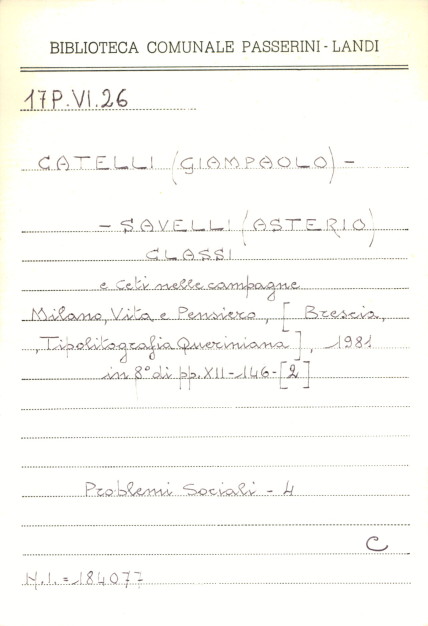 BIBLIOTECA COMUNALE PASSERINI-LANDI
17P.VI.26
CATELLI (GIAMPAOLO) -
- SAVELLI (ASTERIO)
CLASSI
e ceti nelle campagne
Milano, Vita e Pensiero, [Brescia,
Tipolitografia Queriniana], 1981
in 8° di pp. XII-146-[2]
Problemi Sociali - 4
C
N.I. = 184077